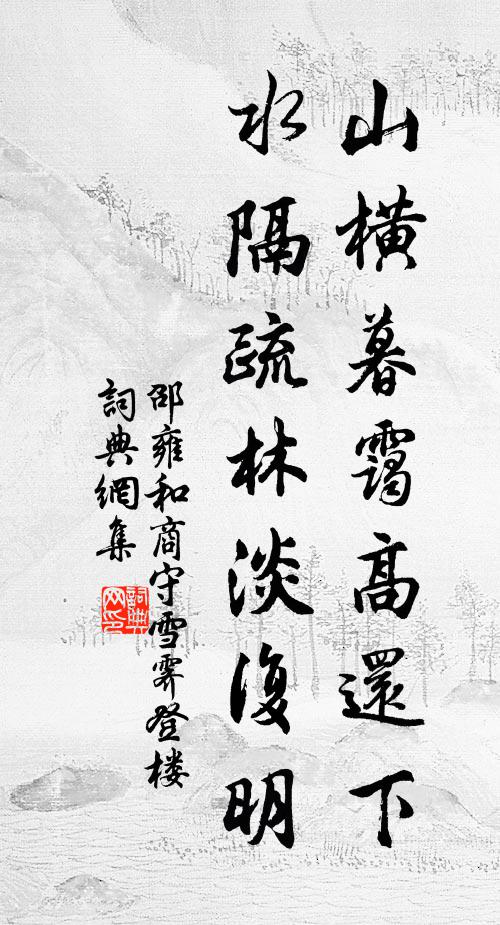 山橫暮靄高還下
水隔疏林淡復明
邵雍和商守雪霽登楼
詞典網集
詞典网印